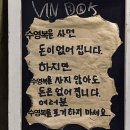 VIN DOK
수영복을 사면
돈이 없어집니다.
하지만,
수영복을 사지 않아도
돈은 없어집니다.
여러분
수영복을 포기하지 마세요...